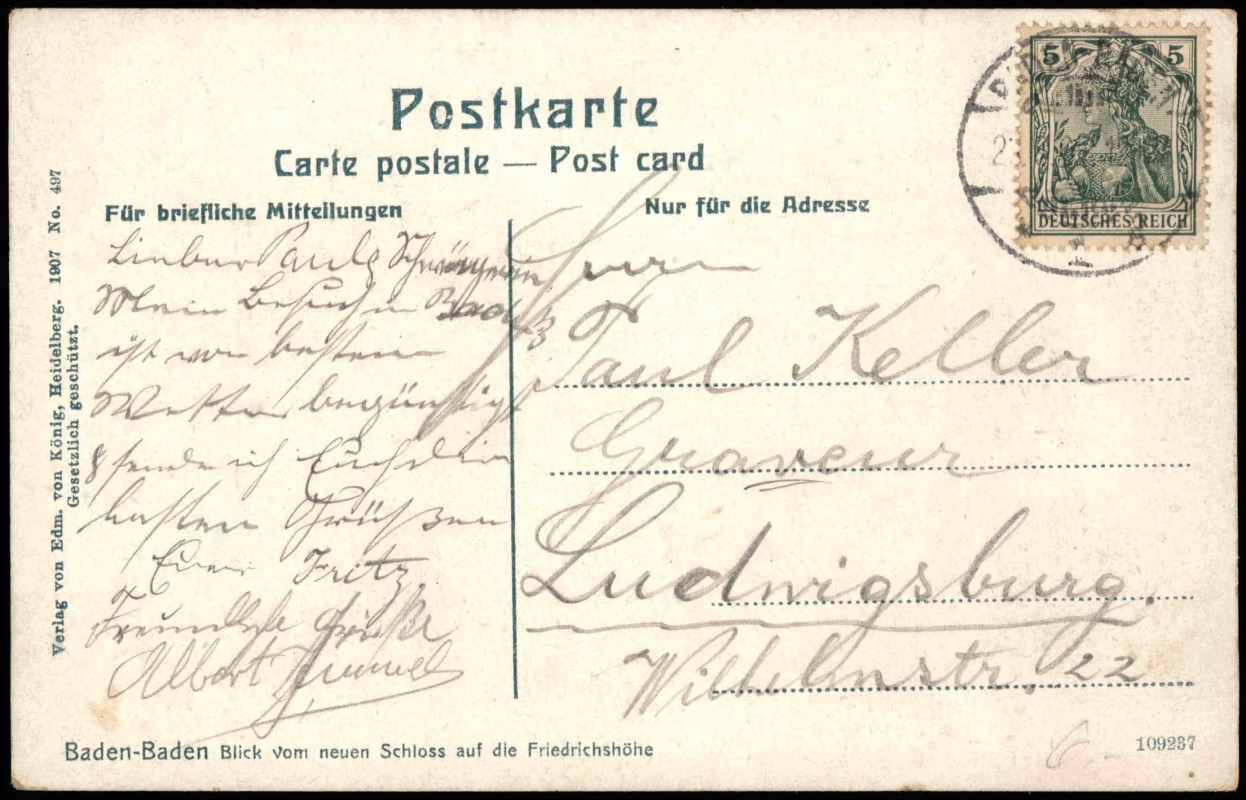 Postkarte
Carte postale — Post card
Für briefliche Mitteilungen
Nur für die Adresse
5 5
DEUTSCHES REICH
Lieber Paul & Schwägerin
Mein Besuch in
ist von bestem
Wetter begünstigt
& sende ich Euch die
besten Grüßen
Euer Fritz
Freundliche Grüße
Albert
Herrn
Paul Keller
Graveur
Ludwigsburg.
Wilhelmstr. 22
Verlag von Edm. von König, Heidelberg. 1907 No. 497
Gesetzlich geschützt.
Baden-Baden Blick vom neuen Schloss auf die Friedrichshöhe
109237